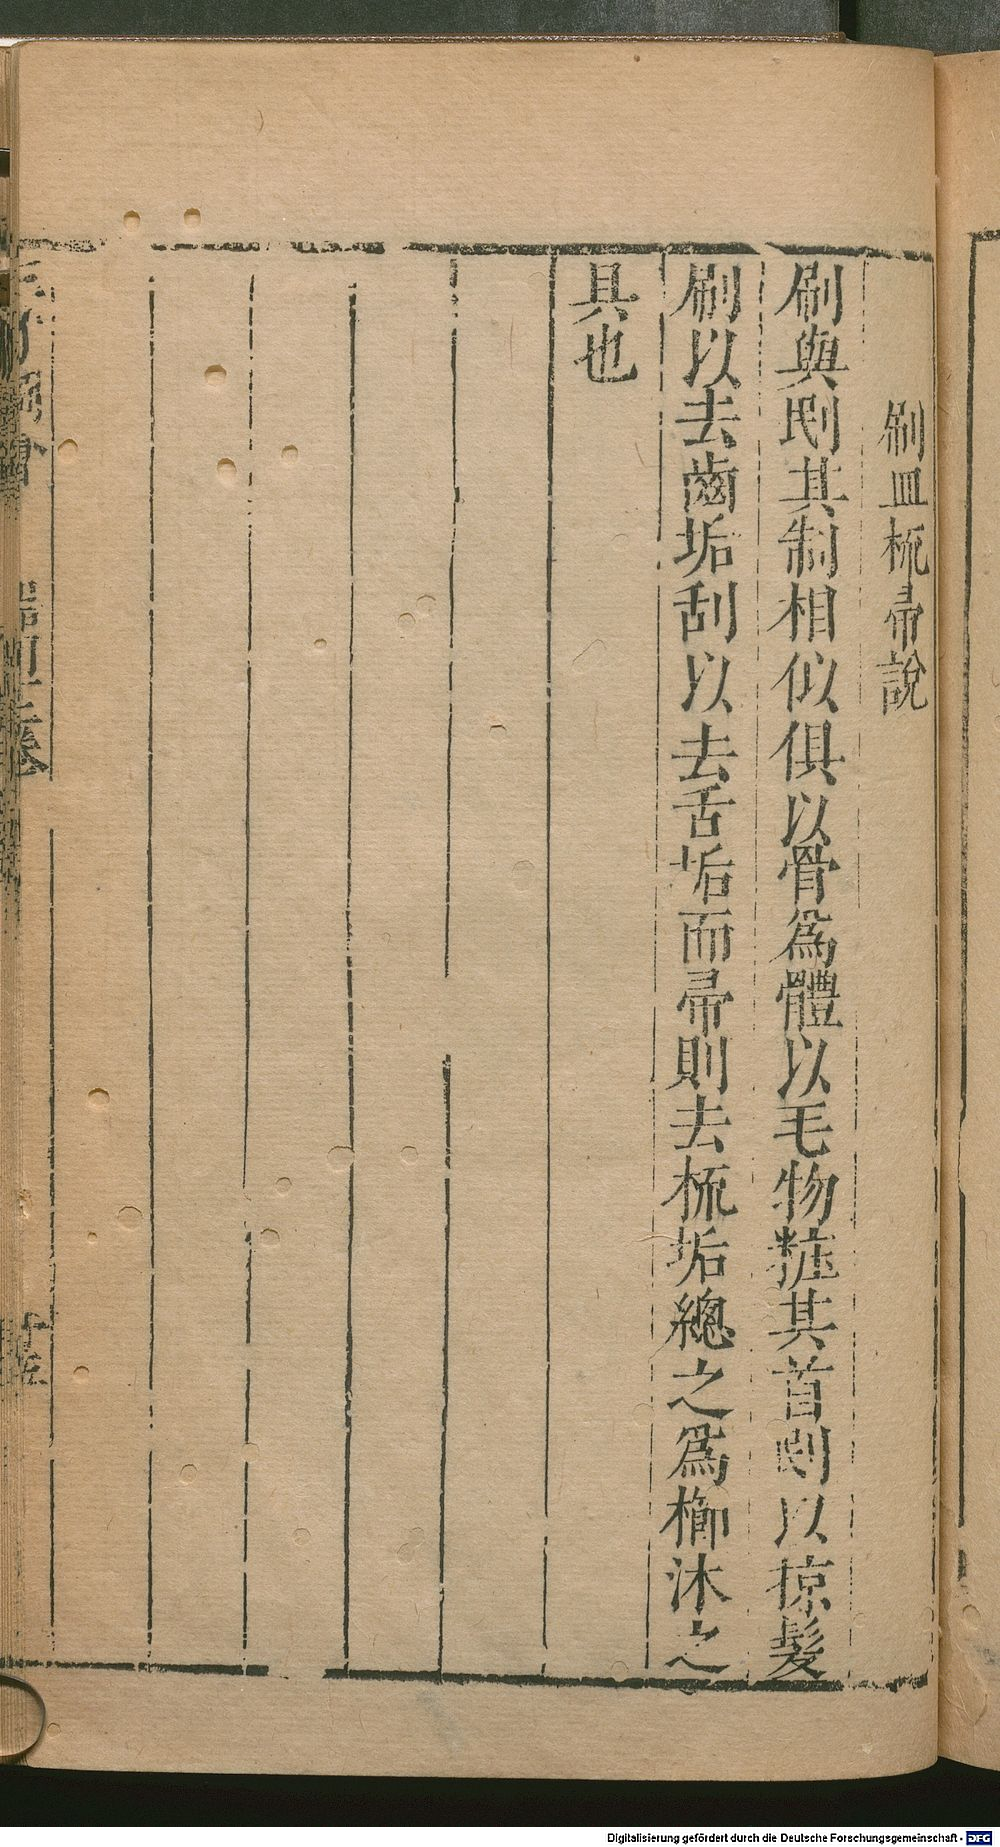 刷皿梳帚說
刷與㓟其制相似俱以骨爲體以毛物粧其首㓟以掠髮
刷以去齒垢刮以去舌垢而帚則去梳垢總之爲櫛沐之
具也
Digitalisierung gefördert durch die Deutsche Forschungsgemeinschaft - DFG